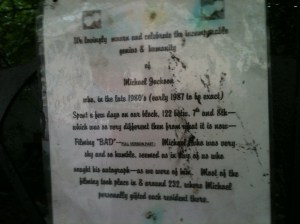 We lovingly mourn and celebrate the incomparable
genius & humanity
of
Michael Jackson
who, in the late 1980's (early 1987 to be exact)
Spent a few days on our block, 122 betw. 7th and 8th—
which was so very different then from what it is now—
Filming "BAD"— Michael Jacks was very
shy and so humble, seemed as in awe of us who
sought his autograph—as we were of him. Most of the
filming took place in & around 232, where Michael
personally gifted each resident there.